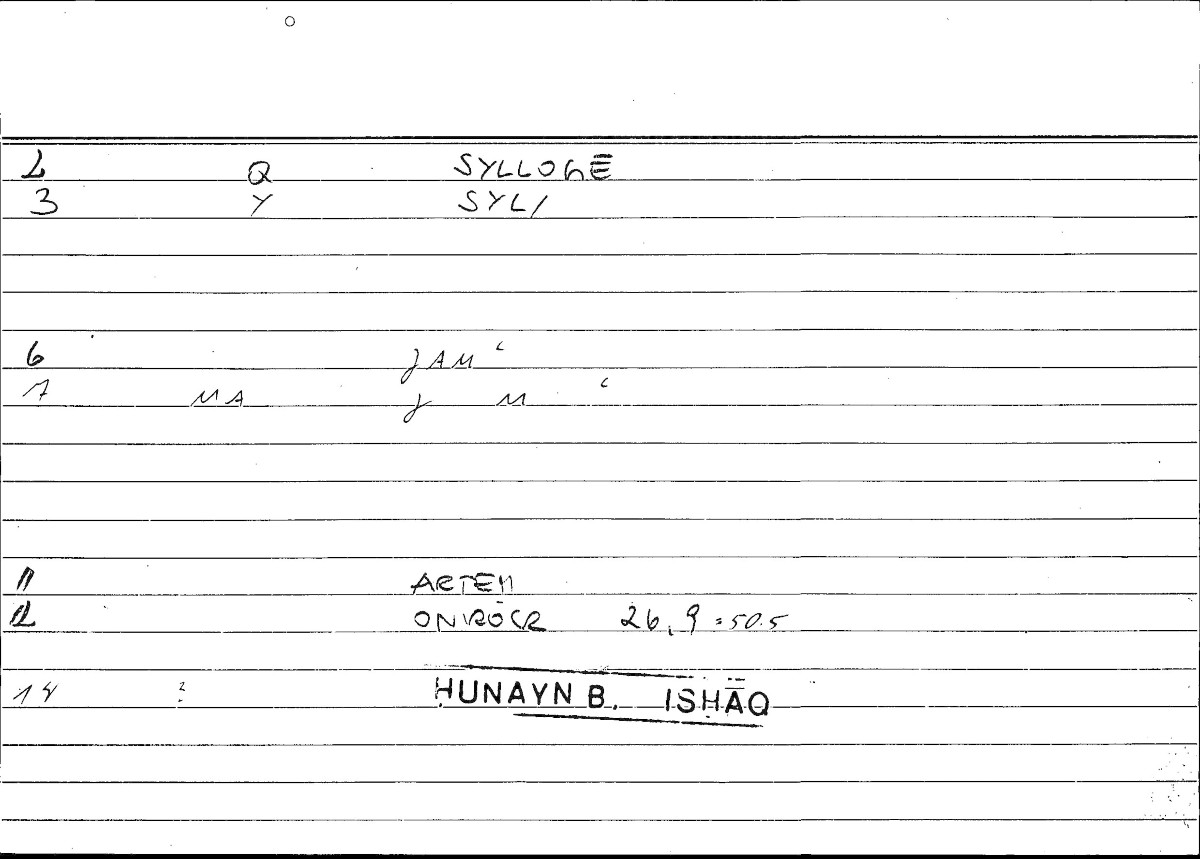 2 Q SYLLOGĒ
3 Y SYL/
6 JAMʿ
7 MA J M ʿ
11 ARTEM
12 ONIROCR 26,9 = 50.5
14 ? ḤUNAYN B. ISḤĀQ